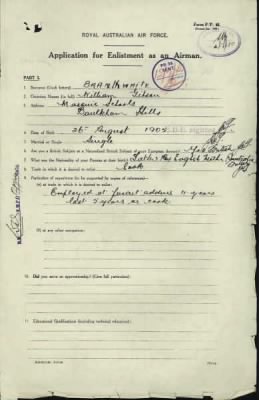 Form P/P. 42.
ROYAL AUSTRALIAN AIR FORCE.
Application for Enlistment as an Airman.
PART I.
1. Surname (block letters) BRANTHWAITE
2. Christian Names (in full) William
3. Address Masonic Schools
Baulkham Hills
4. Date of Birth 26 August 1905
5. Married or Single Single
6. Are you a British Subject or a Naturalized British Subject of pure European descent? Yes British
7. What was the Nationality of your Parents at their birth? Father English
8. Trade in which it is desired to enlist Cook
9. Particulars of experience (to be supported by copies of references)—
(a) at trade in which it is desired to enlist:
Employed at present address 11 years
last 5 years as cook.
(b) at any other occupation:
10. Did you serve an apprenticeship? (Give full particulars)
11. Educational Qualifications (including technical education):